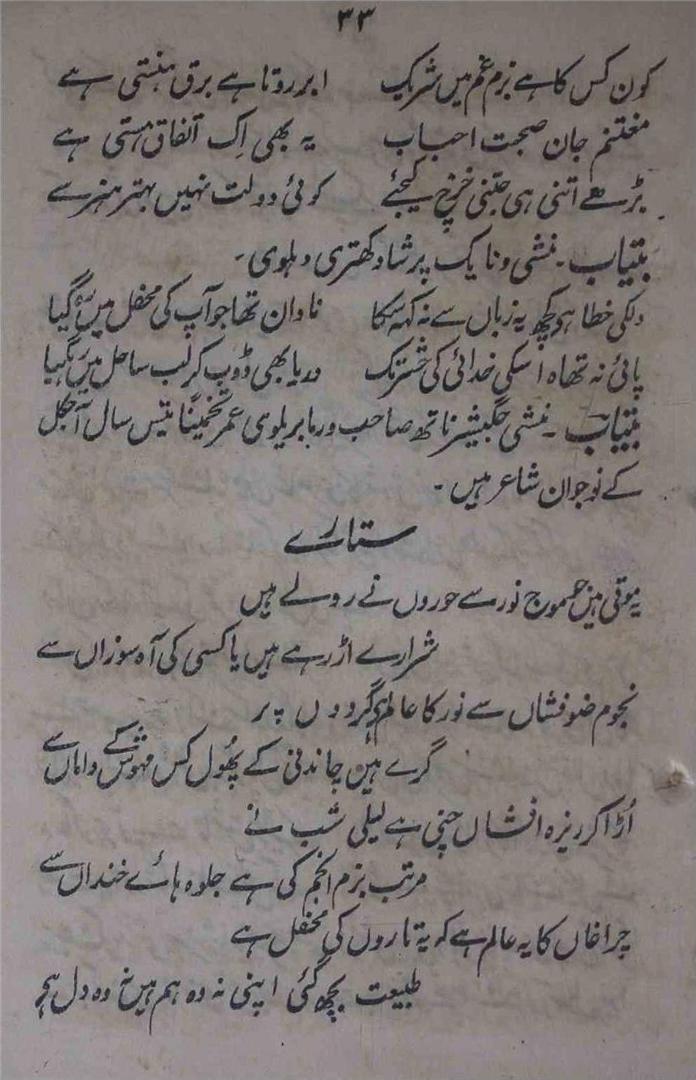 ۳۳
کون کس کا ہے بزم غم میں شریک ابر روتا ہے برق ہنستی ہے
مغتنم جان صحبت احباب یہ بھی اِک اتفاق ہستی ہے
بڑھے اتنی ہی جتنی خرچ کیجئے کوئی دولت نہیں بہتر ہنر سے
بیتاب۔ منشی ونایک پرشاد کھتری دہلوی۔
دلکی خطا ہو کچھ یہ زباں سے نہ کہہ سکا نادان تھا جو آپ کی محفل میں رہ گیا
پائی نہ تھاہ اسکی خدائی کی حشر تک دریا بھی ڈوب کر لب ساحل میں رہ گیا
بیتاب۔ منشی جگیشر ناتھ صاحب ورما بریلوی عمر تخمیناً بتیس سال آجکل
کے نوجوان شاعر ہیں۔
ستارے
یہ موتی ہیں جو موج نور سے حوروں نے رولے ہیں
شرارے اڑ رہے ہیں یا کسی کی آہ سوزاں سے
نجوم ضوفشاں سے نور کا عالم ہے گردوں پر
گرے ہین چاندنی کے پھُول کس مہوش کے داماں سے
اُڑا کر ریزہ افشاں چنی ہے لیلی شب نے
مرتب بزم انجم کی ہے جلوہ ہائے خنداں سے
چراغاں کا یہ عالم ہے کہ یہ تاروں کی محفل ہے
طبیعت بجھ گئی اپنی نہ وہ ہم ہیں نہ وہ دل ہے